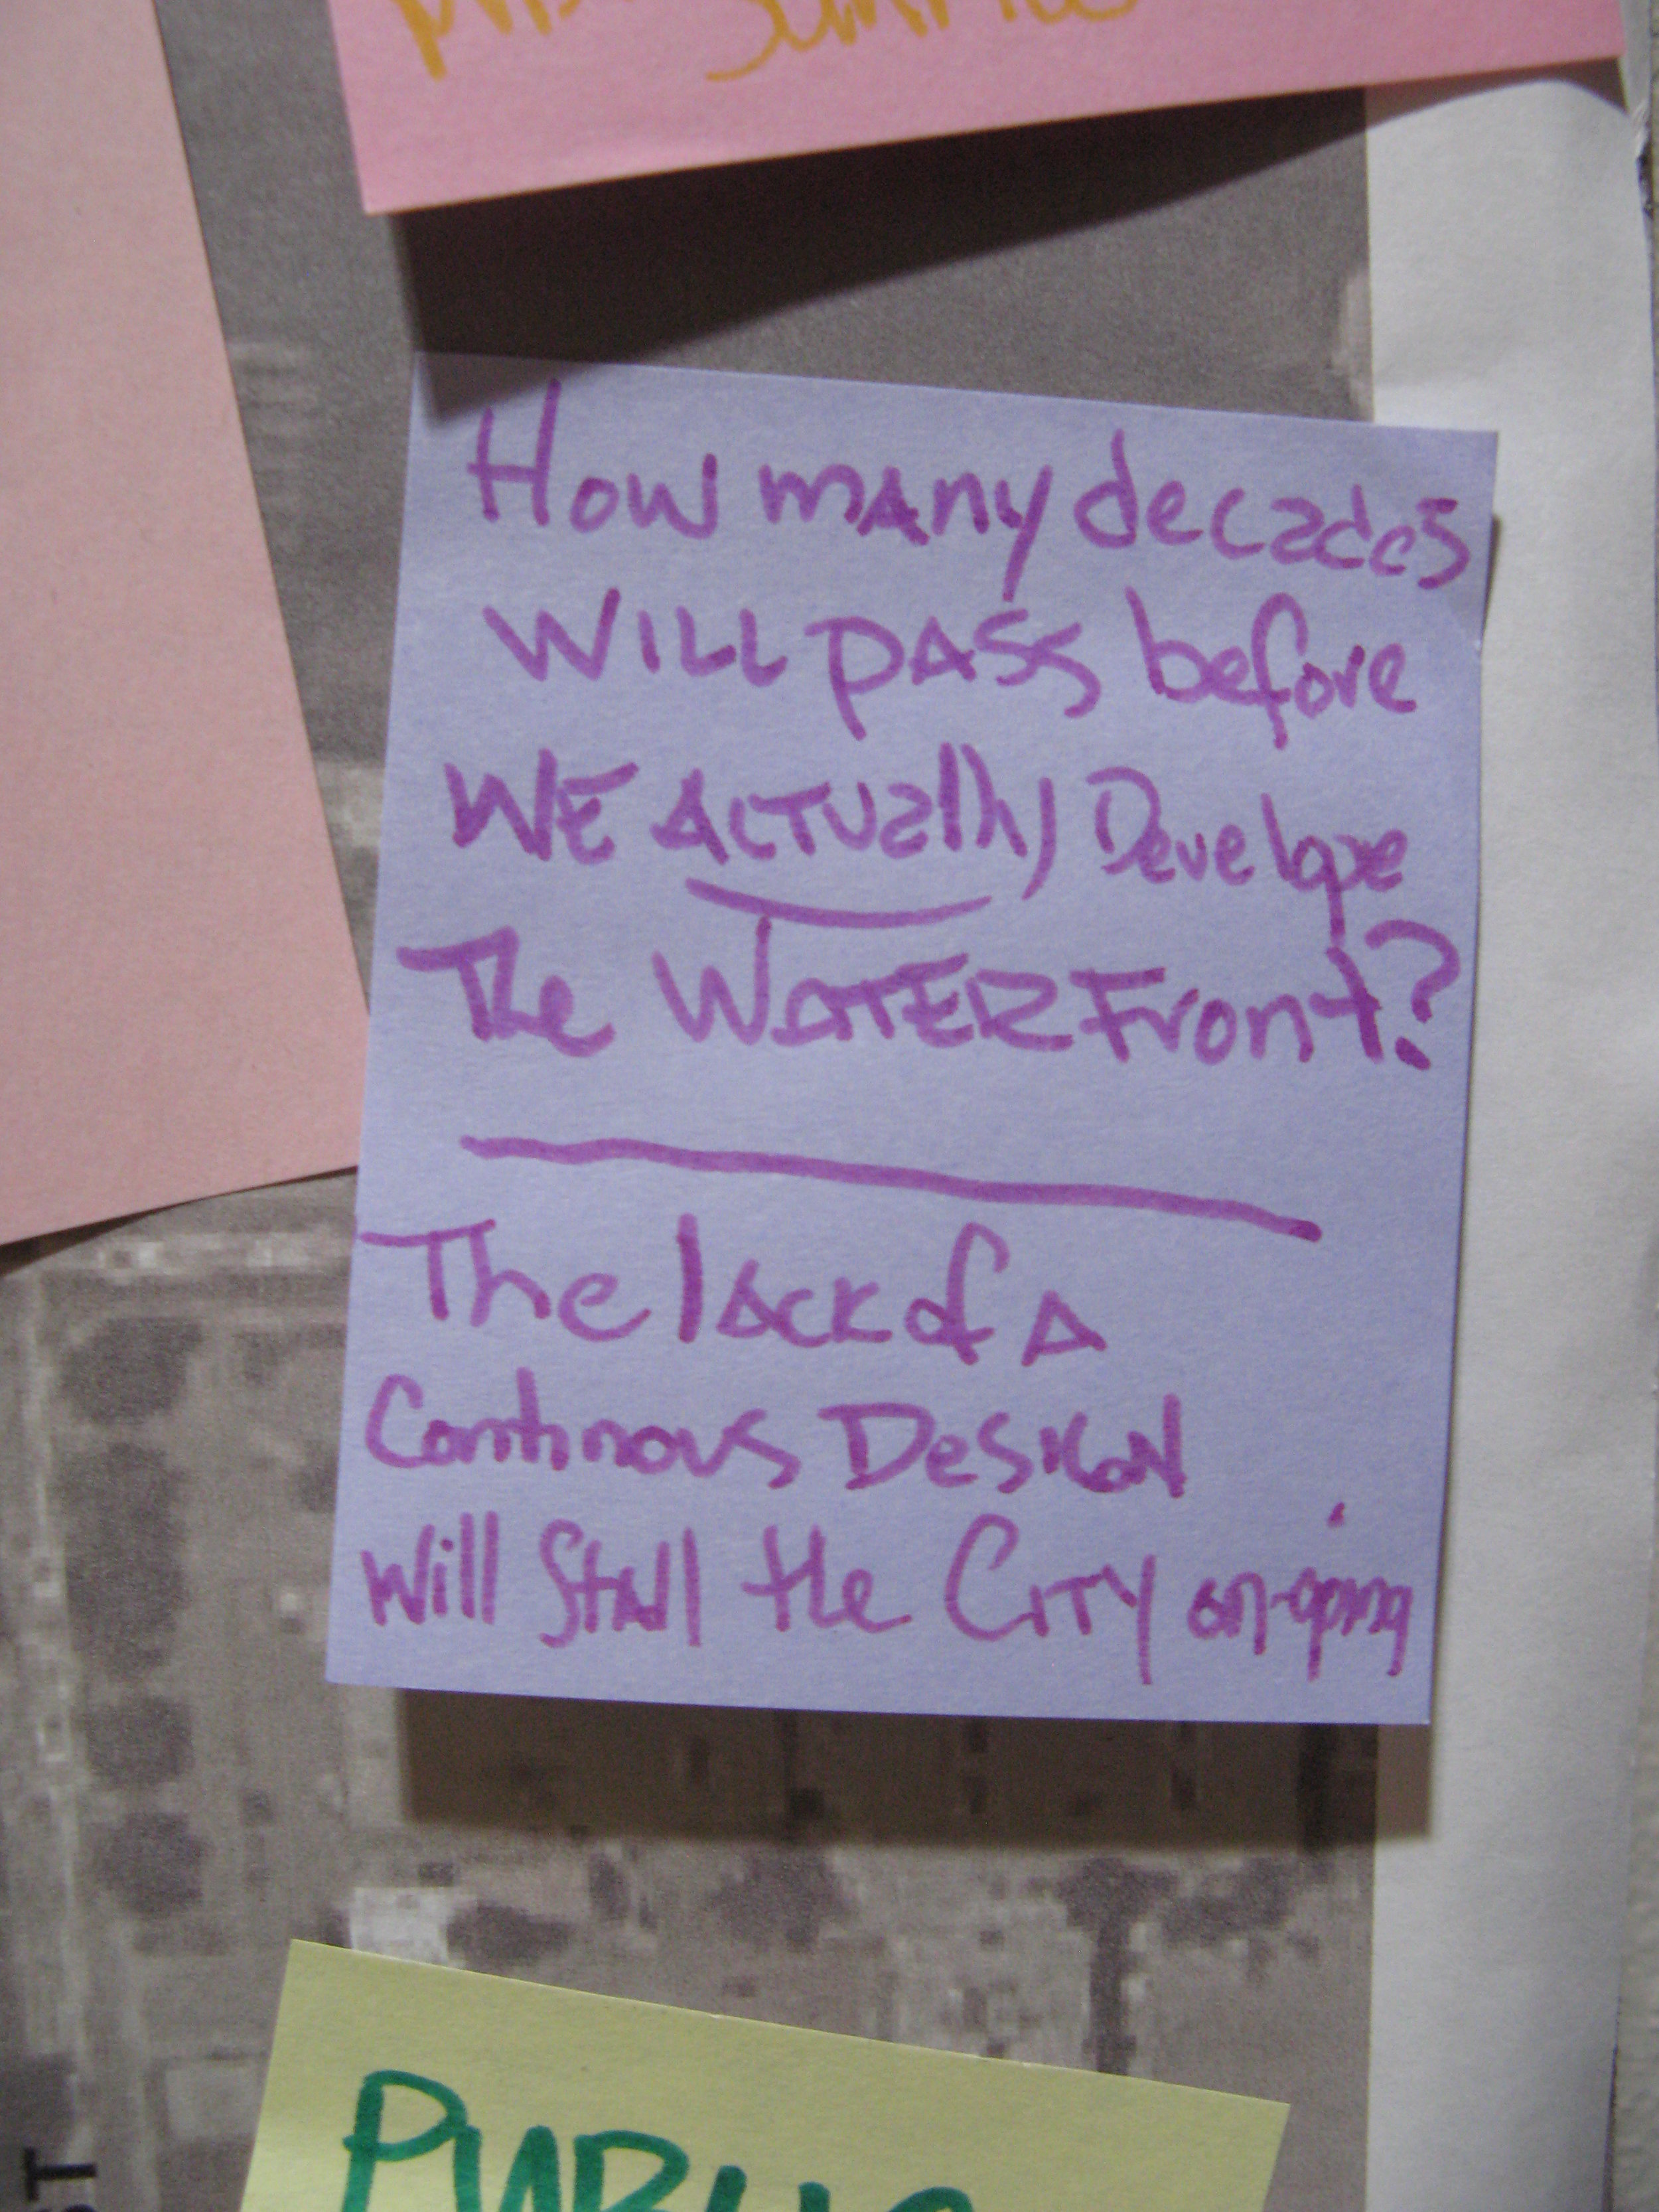 How many decades
WILL pass before
WE ACTUally Develope
The WATERFront?
The lack of a
Continous DesIGN
will Stall the City on-going
PUBLIC
ST